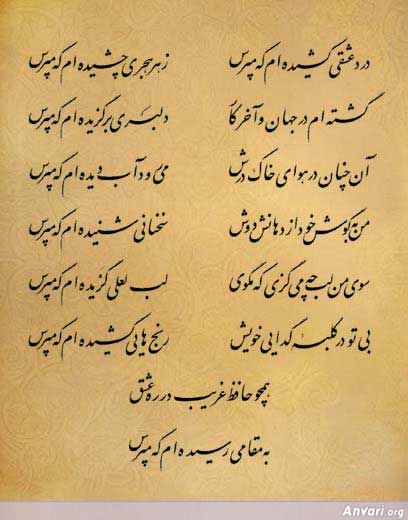 درد عشقی کشیده ام که مپرس زهر هجری چشیده ام که مپرس
گشته ام در جهان و آخر کار دلبری برگزیده ام که مپرس
آن چنان در هوای خاک درش می رود آب دیده ام که مپرس
من به گوش خود از دهانش دوش سخنانی شنیده ام که مپرس
سوی من لب چه می گزی که مگوی لب لعلی گزیده ام که مپرس
بی تو در کلبه گدایی خویش رنج هایی کشیده ام که مپرس
همچو حافظ غریب در ره عشق
به مقامی رسیده ام که مپرس
Anvari.org